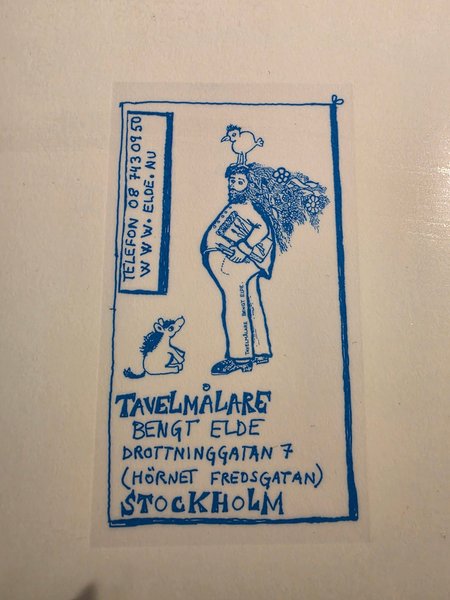 TELEFON 08 743 09 50
WWW.ELDE.NU
TAVELMÅLARE BENGT ELDE.
TAVELMÅLARE
BENGT ELDE
DROTTNINGGATAN 7
(HÖRNET FREDSGATAN)
STOCKHOLM